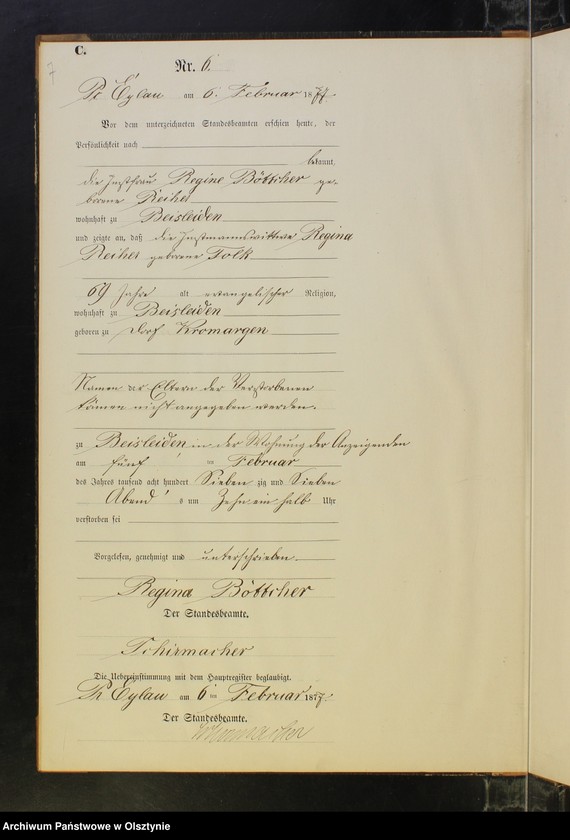 C.
7
Nr. 6.
Pr Eylau am 6. Februar 1877.
Vor dem unterzeichneten Standesbeamten erschien heute, der
Persönlichkeit nach
bekannt,
die Instfrau Regine Böttcher ge-
borene Reiher
wohnhaft zu Beisleiden
und zeigte an, daß die Instmannswittwe Regina
Reiher geborene Folk
69 Jahre alt evangelischer Religion,
wohnhaft zu Beisleiden
geboren zu Dorf Kromargen
Namen der Eltern der Verstorbenen
können nicht angegeben werden.
zu Beisleiden in der Wohnung der Anzeigenden
am fünf ten Februar
des Jahres tausend acht hundert Sieben zig und Sieben
Abend s um Zehn ein halb Uhr
verstorben sei
Vorgelesen, genehmigt und unterschrieben.
Regina Böttcher
Der Standesbeamte.
Schirmacher
Die Uebereinstimmung mit dem Hauptregister beglaubigt.
Pr Eylau am 6 ten Februar 1877.
Der Standesbeamte.
Schirmacher
Archiwum Państwowe w Olsztynie